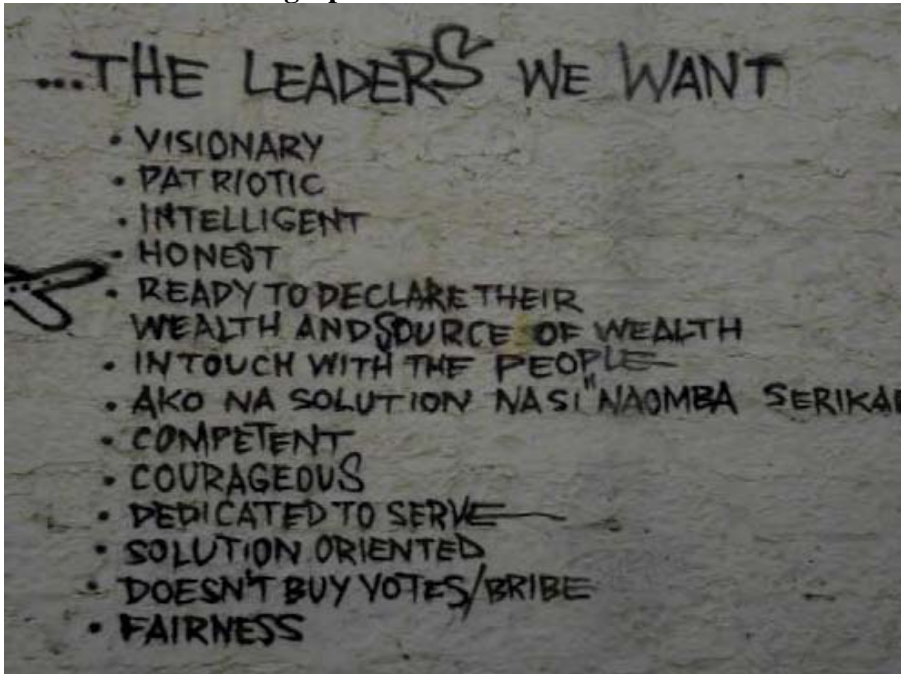 ...THE LEADERS WE WANT
• VISIONARY
• PATRIOTIC
• INTELLIGENT
• HONEST
• READY TO DECLARE THEIR
WEALTH AND SOURCE OF WEALTH
• IN TOUCH WITH THE PEOPLE
• AKO NA SOLUTION NA SI "NAOMBA SERIKA
• COMPETENT
• COURAGEOUS
• DEDICATED TO SERVE
• SOLUTION ORIENTED
• DOESN'T BUY VOTES/BRIBE
• FAIRNESS